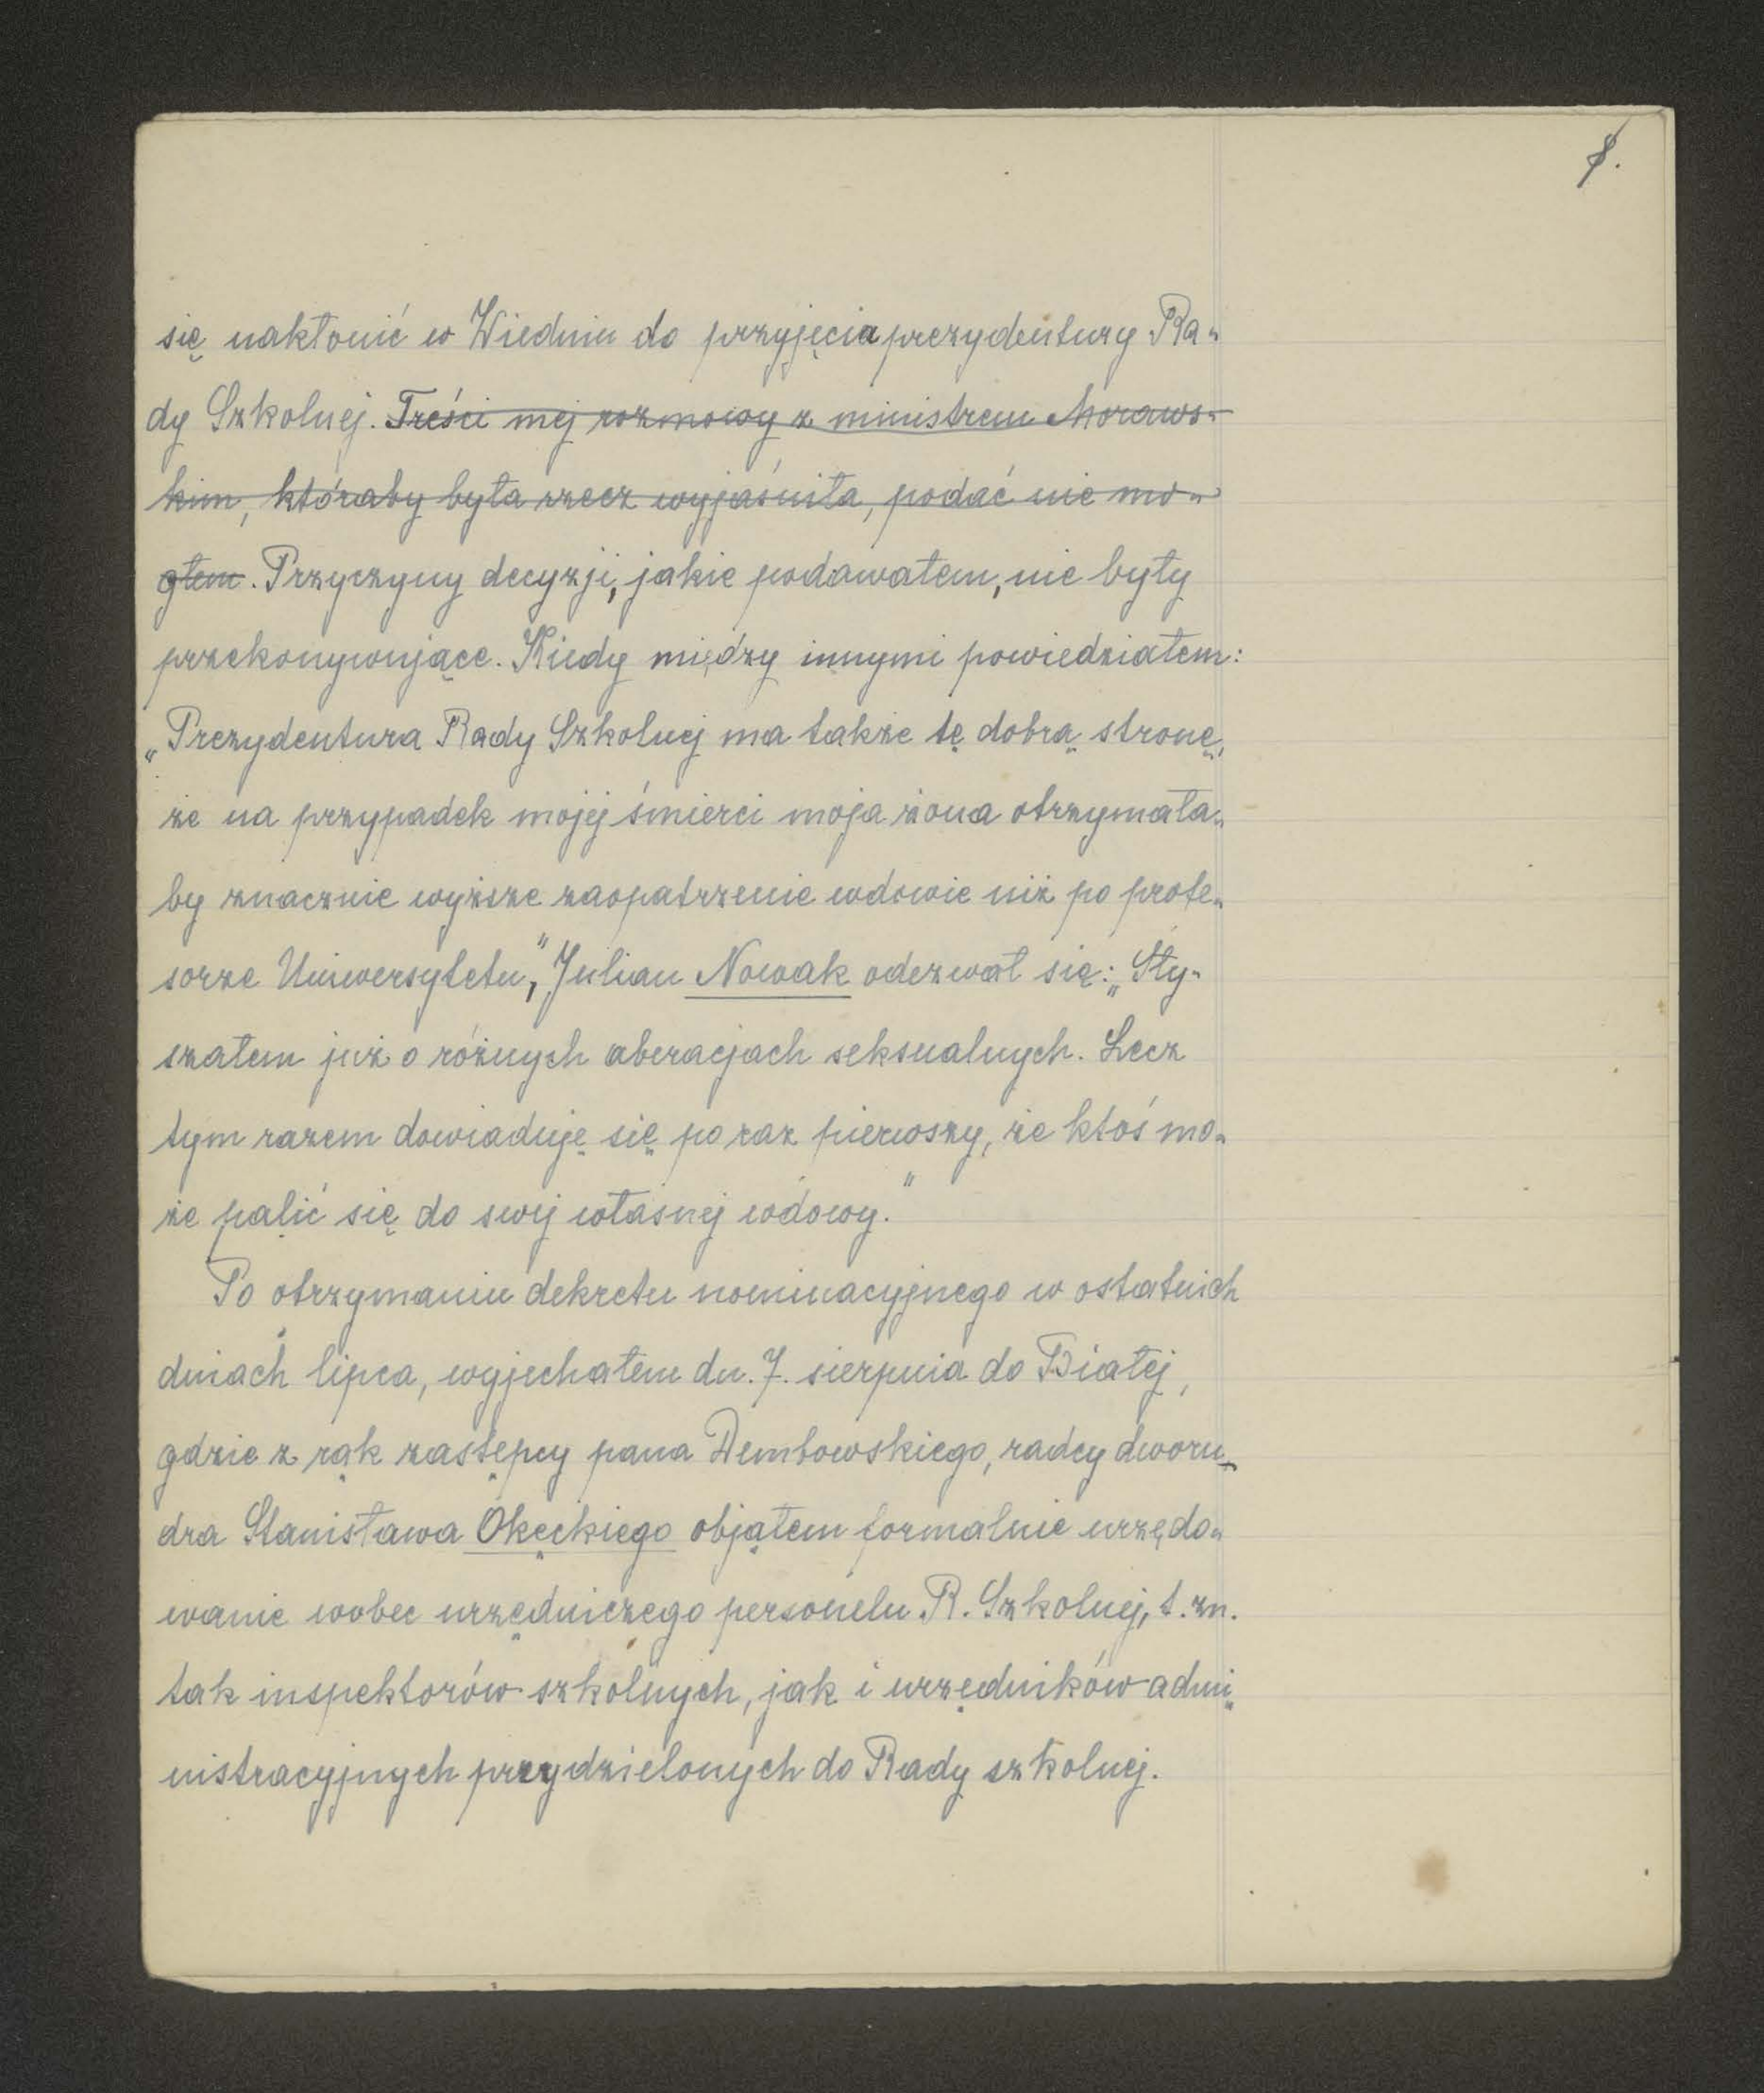 8.
się nakłonić w Wiedniu do przyjęcia prezydentury Ra-
dy Szkolnej. Treści mej rozmowy z ministrem Moraws-
kim, któraby była rzecz wyjaśniła, podać nie mo-
głem. Przyczyny decyzji, jakie podawałem, nie były
przekonywujące. Kiedy między innymi powiedziałem:
„Prezydentura Rady Szkolnej ma także tę dobrą stronę,
że na przypadek mojej śmierci moja żona otrzymała-
by znacznie wyższe zaopatrzenie wdowie niż po profe-
sorze Uniwersytetu," Julian Nowak odezwał się: „Sły-
szałem już o różnych aberacjach seksualnych. Lecz
tym razem dowiaduję się po raz pierwszy, że ktoś mo-
że palić się do swej własnej wdowy."
Po otrzymaniu dekretu nominacyjnego w ostatnich
dniach lipca, wyjechałem dn. 7. sierpnia do Białej,
gdzie z rąk zastępcy pana Dembowskiego, radcy dworu
dra Stanisława Okęckiego objąłem formalnie urzędo-
wanie wobec urzędniczego personelu R. Szkolnej, t. zn.
tak inspektorów szkolnych, jak i urzędników admi
nistracyjnych przydzielonych do Rady szkolnej.